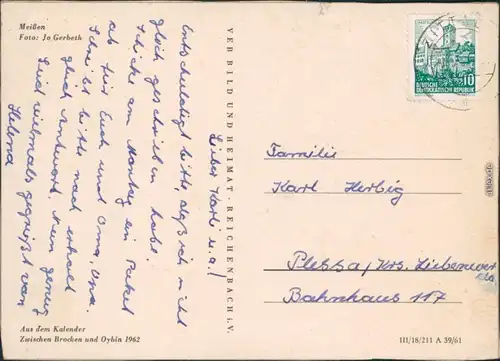 Meißen
Foto: Jo Gerbeth
Lieber Karli u. a.!
Entschuldigt bitte, daß ich nicht
gleich geschrieben habe.
Schicke am Montag ein Paket
ab für Euch und Oma, Opa.
Schreibt bitte nach erhalt
gleich Antwort. Nun genug
Seid vielmals gegrüßt von
Helena
Aus dem Kalender
Zwischen Brocken und Oybin 1962
VEB BILD UND HEIMAT · REICHENBACH i. V.
DEUTSCHE
DEMOKRATISCHE REPUBLIK
10
Familie
Karl Herbig
Plessa, Krs. Liebenwer
da
Bahnhaus 117
III/18/211 A 39/61